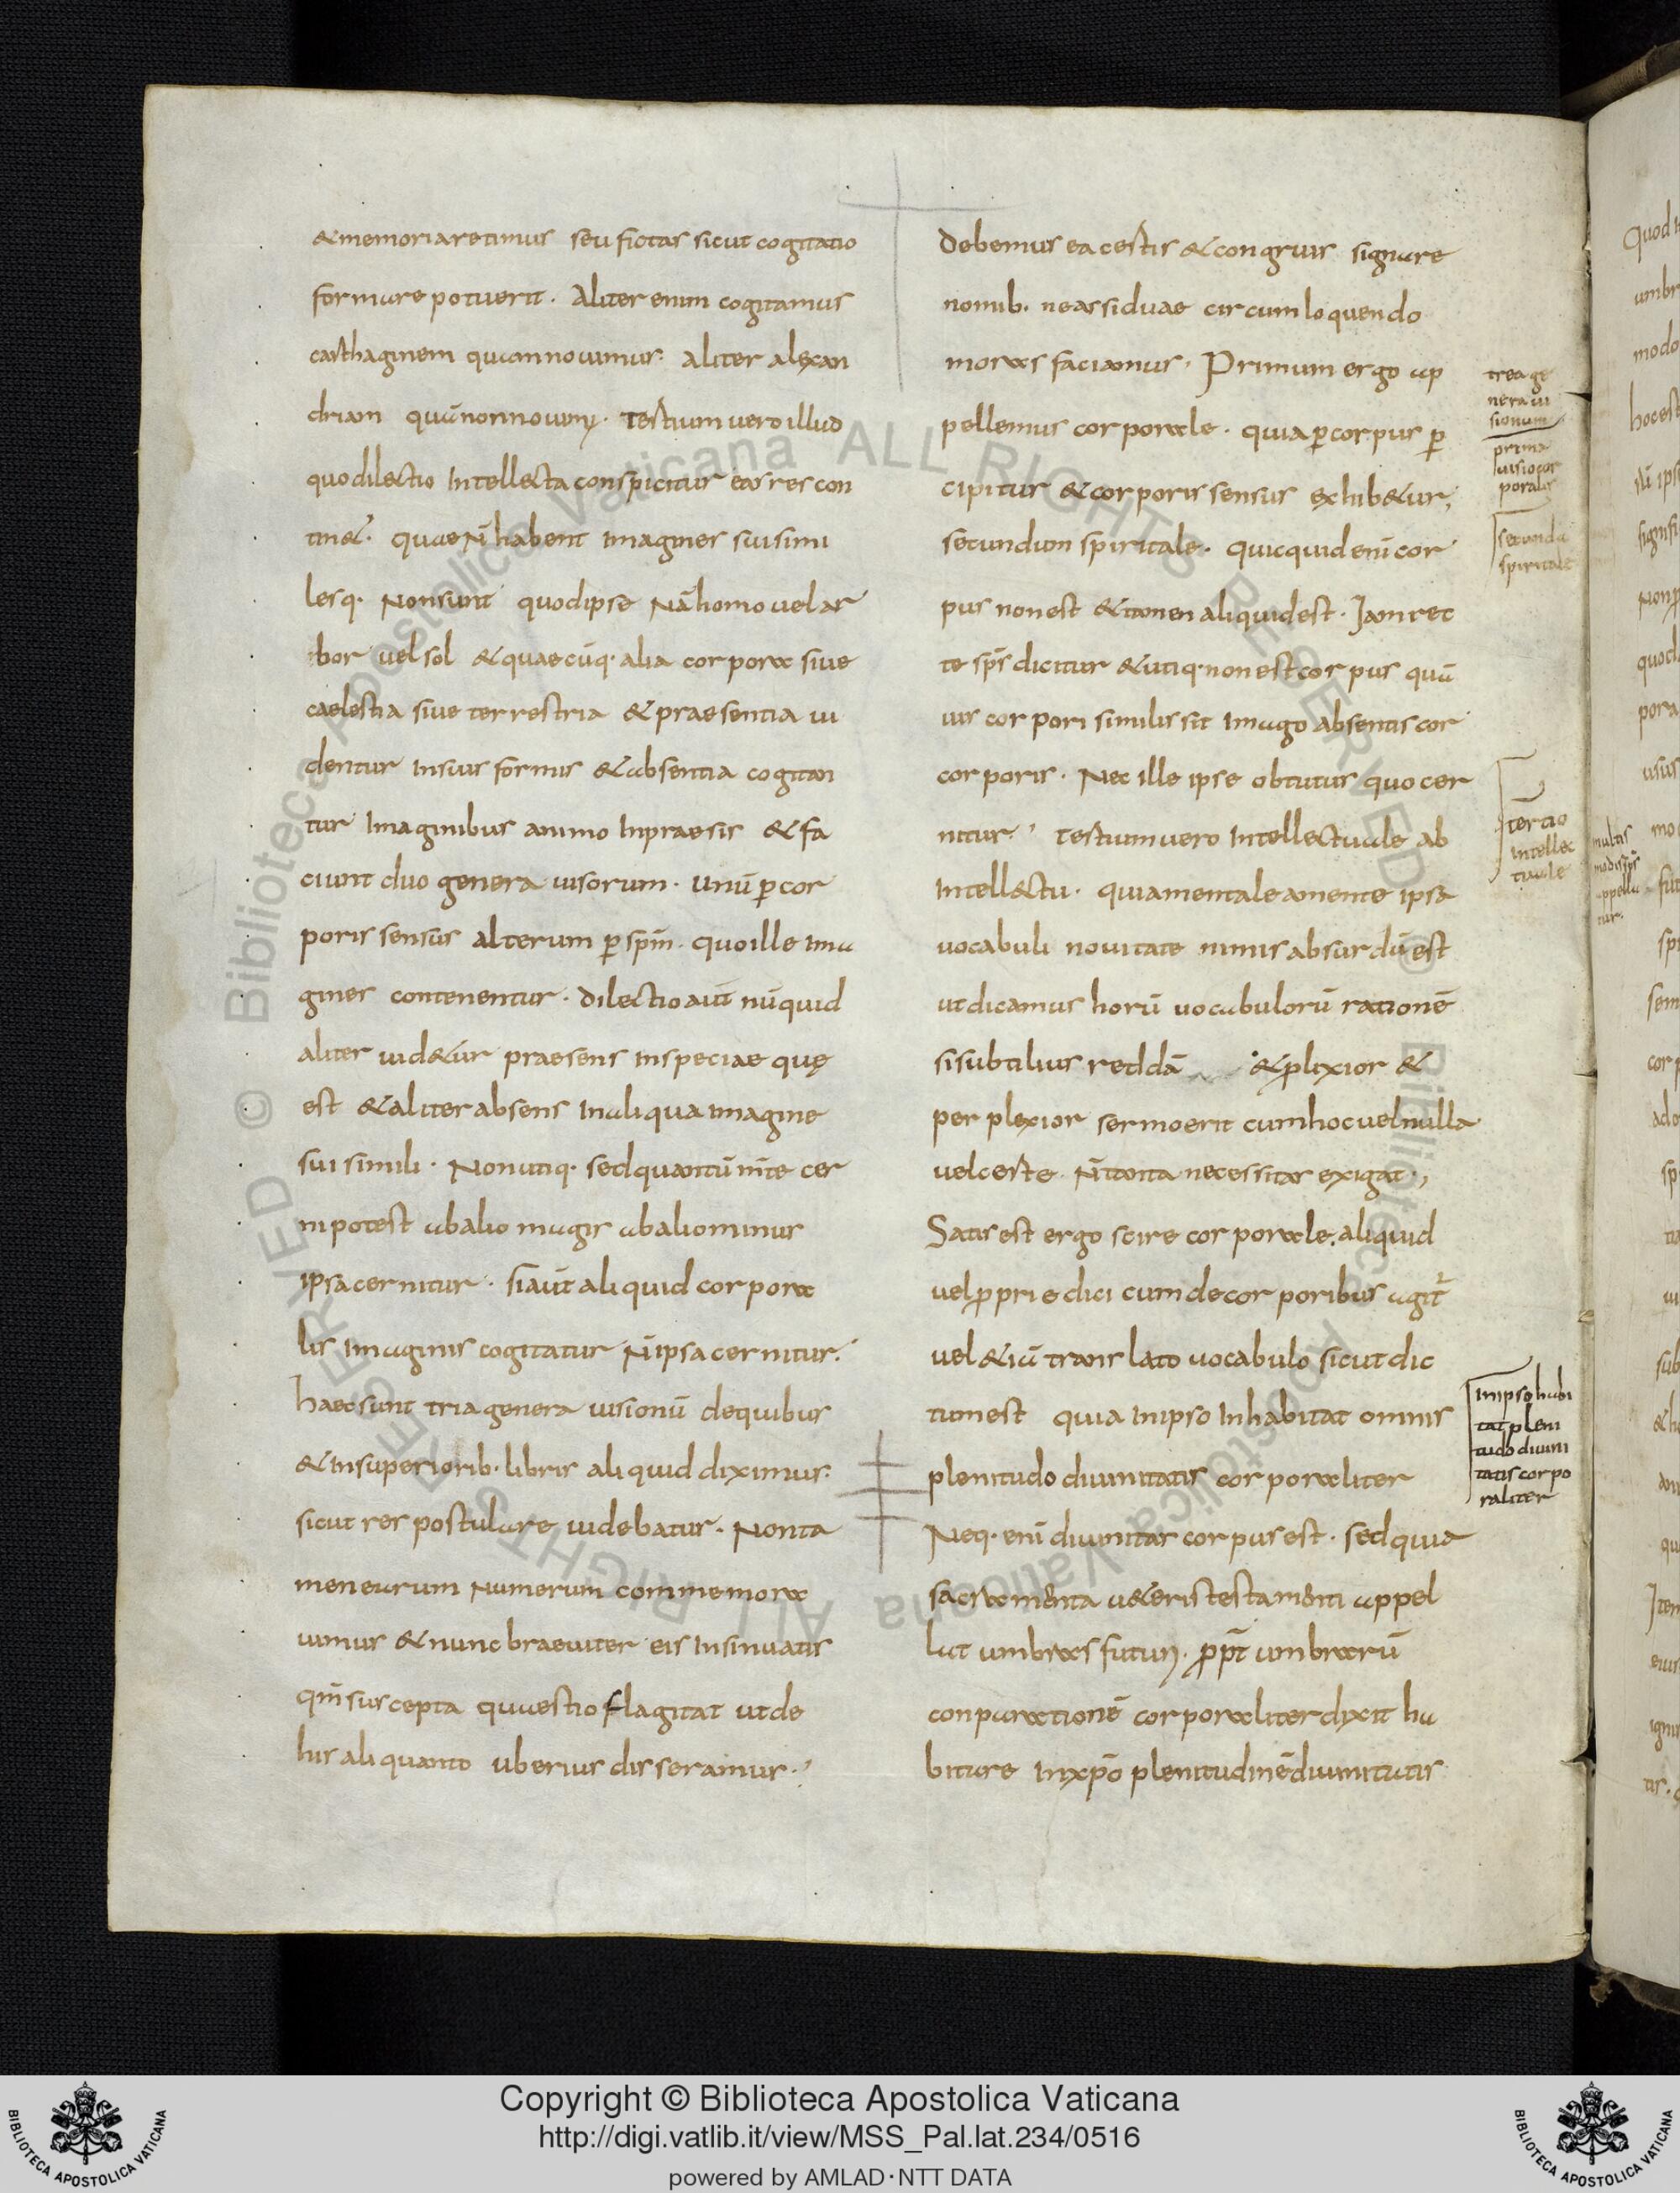 &memoria retinus seu fictas sicut cogitatio
formare potuerit. Aliter enim cogitamus
carthaginem quam novimus: aliter alexan
driam quā non novim;. Tertium vero illud
quo dilectio Intellecta conspicitur eas res con
tin&. quae n̄ habent imagines sui simi
lesq. Non sunt quod ipse Nā homo vel ar
bor vel sol & quaecūq. alia corpora sive
caelestia sive terrestria & praesentia vi
dentur In suis formis & absentia cogitan
tur Imaginibus animo Inpraesis & fa
ciunt duo genera visorum. unū ꝑ cor
poris sensus alterum ꝑ spm̄. quo ille ima
gines contenentur. dilectio aut̄ nūquid
aliter vid&ur praesens In speciae quę
est & aliter absens In aliqua imagine
sui simili. Non utiq. sed quantū m̄te cer
ni potest ab alio magis ab alio minus
ipsa cernitur. Si aut̄ aliquid corpora
lis imaginis cogitatur n̄ ipsa cernitur.
haec sunt tria genera visionū de quibus
& In superiorib. libris aliquid diximus.
sicut res postulare videbatur. Non ta
men earum Numerum commemora
vimus & nunc braeviter eis Insinuatis
qm̄ suscepta quaestio flagitat ut de
his aliquanto uberius disseramus.
debemus ea certis & congruis signare
nomib. ne assiduae circumloquendo
moras faciamus. Primum ergo ap
pellemus corporale. quia ꝑ corpus ꝑ
cipitur & corporis sensus exhib&ur;
secundum spiritale. quicquid eni cor
pus non est & tamen aliquid est. Jam rec
te sp̄s dicitur & utiq. non est corpus quā
vis corpori similis sit imago absentis cor
corporis. Nec ille ipse obtutus quo cer
nitur. Tertium vero Intellectuale ab
Intellectu. quia mentale a mente ipsa
vocabuli novitate nimis absurdū est
ut dicamus horū vocabulorū rationē
si subtilius reddā & ꝓlixior &
perplexior sermo erit cum hoc vel nulla
vel certe n̄ tanta necessitas exigat;
Satis est ergo scire corporale. aliquid
vel ꝓprie dici cum de corporibus agit̄
vel &iā translato vocabulo sicut dic
tum est quia In ipso Inhabitat omnis
plenitudo divinitatis corporaliter
Neq. eni divinitas corpus est. sed quia
sacramenta v&eris testamenti appel
lat umbras futuri. ꝓpt̄ umbrarū
conparationē corporaliter dixit ha
bitare In xp̄o plenitudinē divinitatis
trea ge
nera vi
sionum
prima
visio cor
poralis
secunda
spiritale
tertio
intellec
tuale
In ipso habi
tat pleni
tudo divini
tatis corpo
raliter
multis
modis sps
appella
tur.
Copyright © Biblioteca Apostolica Vaticana
http://digi.vatlib.it/view/MSS_Pal.lat.234/0516
powered by AMLAD·NTT DATA
BIBLIOTECA APOSTOLICA VATICANA
BIBLIOTECA APOSTOLICA VATICANA
© Biblioteca Apostolica Vaticana ALL RIGHTS RESERVED
© Biblioteca Apostolica Vaticana ALL RIGHTS RESERVED